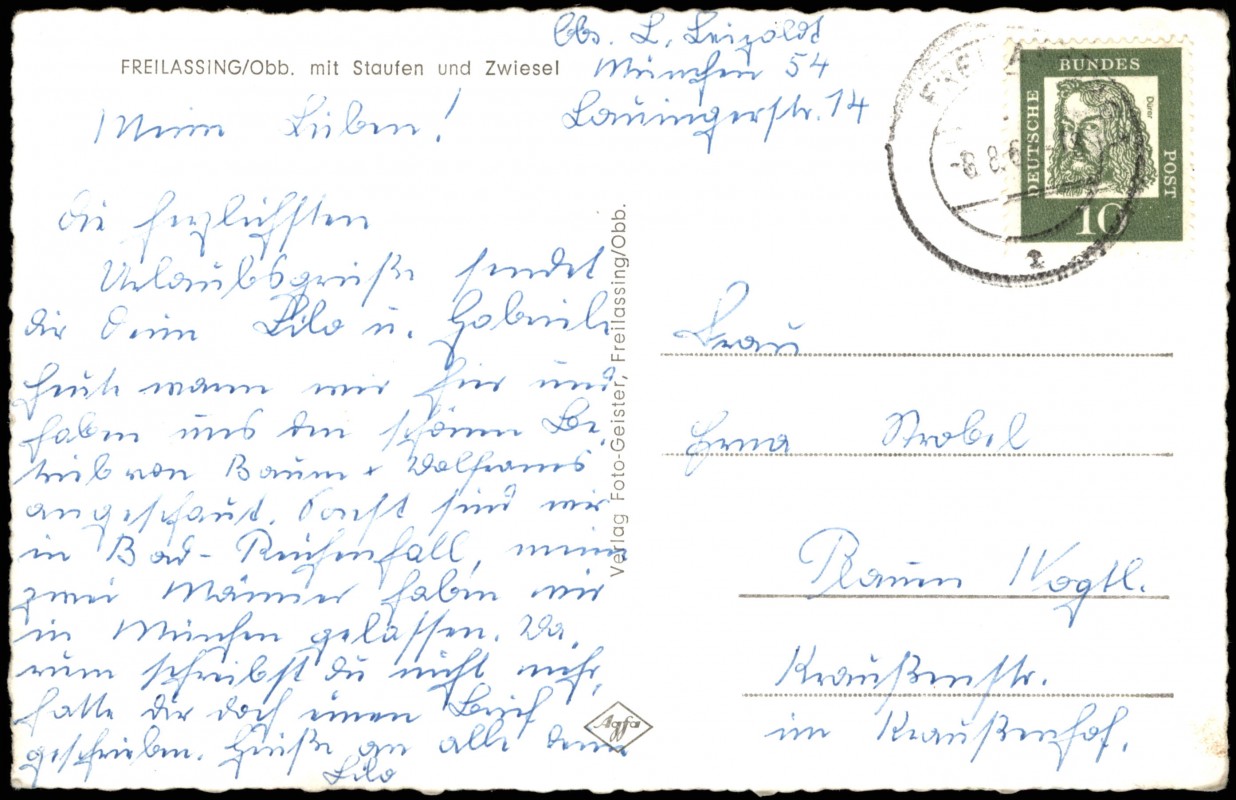 FREILASSING/Obb. mit Staufen und Zwiesel
Abs. L. Leipoldt
München 54
Lauingerstr. 14
Meine Lieben!
die herzlichsten
Urlaubsgrüße sendet
dir deine Lilo u. Gabriele
heute waren wir hier und
haben uns den schönen Be,
trieb von Baum + Wolframs
angeschaut. Sonst sind wir
in Bad-Reichenhall, meine
zwei Männer haben wir
in München gelassen. Wa,
rum schreibst du nicht mehr,
hatte dir doch einen Brief
geschrieben. Grüße an alle deine
Lilo
Verlag Foto-Geister, Freilassing/Obb.
Agfa
-8.8.6
1
DEUTSCHE BUNDES POST
Dürer
10
Frau
Erna Strobel
Plauen /Vogtl.
Kraußenstr.
im Kraußenhof.